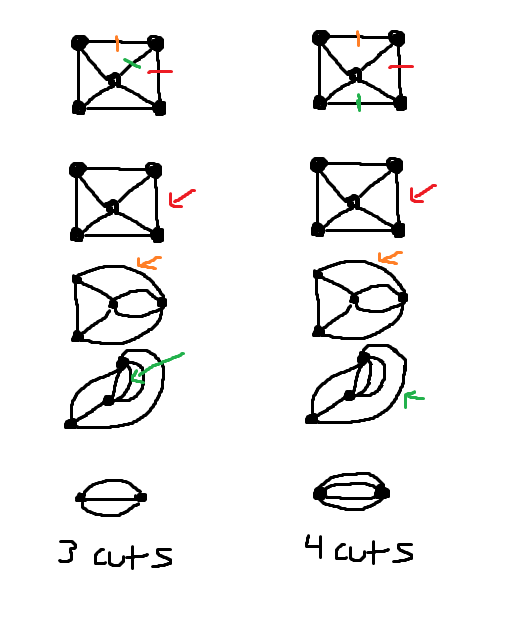 3 cuts
4 cuts